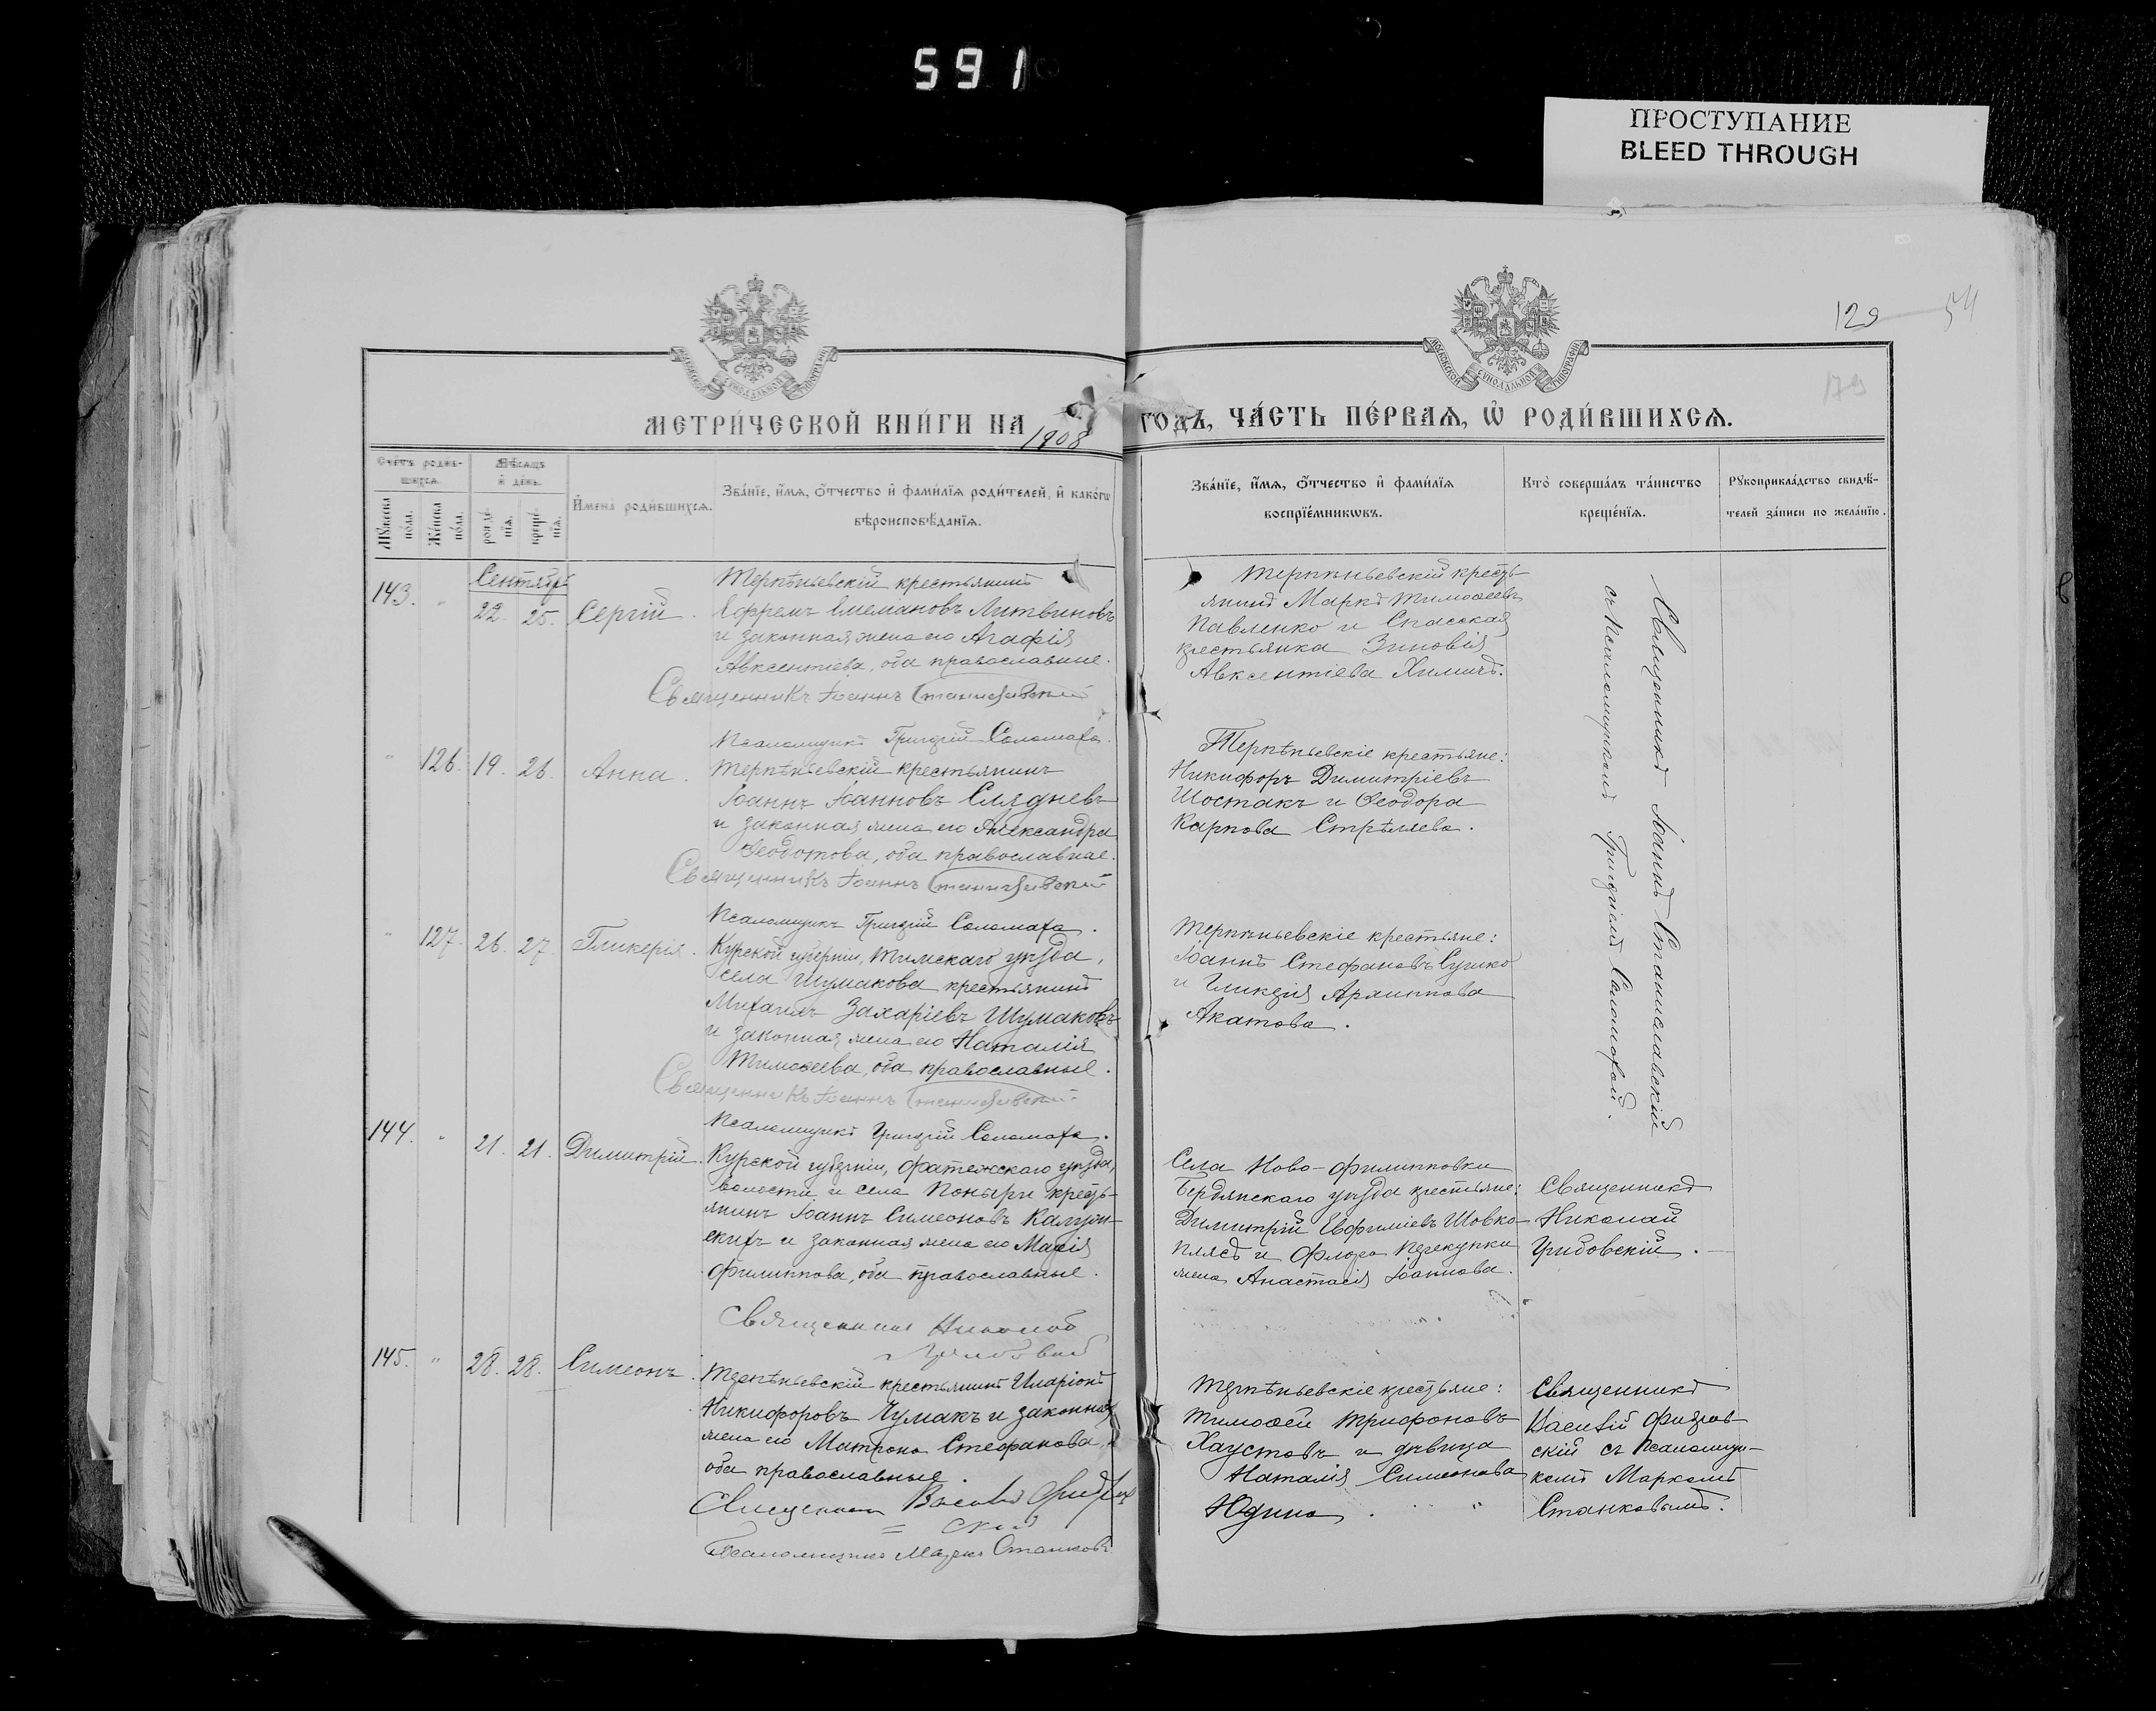 591
ПРОСТУПАНИЕ
BLEED THROUGH
129
54
179
МОСКОВСКОЙ СѴНОДАЛЬНОЙ ТИПОГРАФІИ
МОСКОВСКОЙ СѴНОДАЛЬНОЙ ТИПОГРАФІИ
МЕТРИ́ЧЕСКОЙ КНИ́ГИ НА 1908 ГОДЪ, ЧА́СТЬ ПЕ́РВАЯ, Ѡ РОДИ́ВШИХСЯ.
Счетъ родив-
шихся.
Мужеска
пола.
Женска
пола.
Мѣсяцъ
и день.
рожде-
нія.
креще-
нія.
Имена родившихся.
Званіе, имя, отчество и фамилія родителей, и какогѡ
вѣроисповѣданія.
Званіе, имя, отчество и фамилія
воспріемникѡвъ.
Кто совершалъ таинство
крещенія.
Рукоприкладство свидѣ-
телей записи по желанію.
Сентябрь
143. " 22. 25. Сергій.
Терпѣньевскій крестьянинъ
Ефремъ Литвиновъ
и законная жена его Агафія
Авксентіева, оба православные.
Священникъ Іоаннъ Станиславскій
Псаломщикъ Григорій Соломаха.
Терпѣньевскій кресть-
янинъ Маркъ Тимоѳеевъ
Павленко и Спасская
крестьянка Зиновія
Авксентіева Химичъ.
Священникъ Іоаннъ Станиславскій
съ псаломщикомъ Григоріемъ Соломахой.
" 126. 19. 26. Анна.
Терпѣньевскій крестьянинъ
Іоаннъ Іоанновъ Слядневъ
и законная жена его Александра
Ѳеодотова, оба православные.
Священникъ Іоаннъ Станиславскій
Псаломщикъ Григорій Соломаха.
Терпѣньевскіе крестьяне:
Никифоръ Димитріевъ
Шостакъ и Ѳеодора
Карпова Стрѣляева.
" 127. 26. 27. Гликерія.
Курской губерніи, Тимскаго уѣзда,
села Шумакова крестьянинъ
Михаилъ Захаріевъ Шумаковъ
и законная жена его Наталія
Тимоѳеева, оба православные.
Священникъ Іоаннъ Станиславскій
Псаломщикъ Григорій Соломаха.
Терпѣньевскіе крестьяне:
Іоаннъ Стефановъ Сушко
и Гликерія
Акатова.
144. " 21. 21. Димитрій.
Курской губерніи, Фатежскаго уѣзда,
волости и села Поныри кресть-
янинъ Іоаннъ Симеоновъ
и законная жена его Марія
Филиппова, оба православные.
Священникъ Николай
Грибовскій
Села Ново-Филипповки
Бердянскаго уѣзда крестьяне:
Димитрій Евфиміевъ Шовко-
плясъ и Флора
жена Анастасія Іоаннова.
Священникъ
Николай
Грибовскій.
145. " 28. 28. Симеонъ.
Терпѣньевскій крестьянинъ Иларіонъ
Никифоровъ Чумакъ и законная
жена его Матрона Стефанова,
оба православные.
Священникъ Василій
скій
Псаломщикъ Марко Станковъ
Терпѣньевскіе крестьяне:
Тимоѳей Трифоновъ
Хаустовъ и дѣвица
Наталія Симеонова
Юдина.
Священникъ
Василій
скій съ псаломщи-
комъ Маркомъ
Станковымъ.